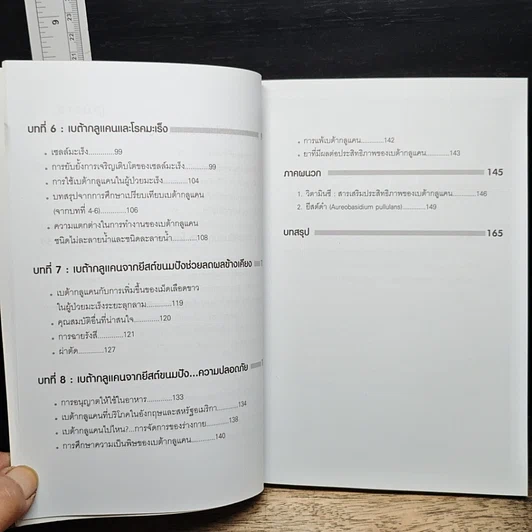 บทที่ 6 : เบต้ากลูแคนและโรคมะเร็ง
• เซลล์มะเร็ง............99
• การยับยั้งการเจริญเติบโตของเซลล์มะเร็ง............99
• การใช้เบต้ากลูแคนในผู้ป่วยมะเร็ง............104
• บทสรุปจากการศึกษาเปรียบเทียบเบต้ากลูแคน
(จากบทที่ 4-6)............106
• ความแตกต่างในการทำงานของเบต้ากลูแคน
ชนิดไม่ละลายน้ำและชนิดละลายน้ำ............108
บทที่ 7 : เบต้ากลูแคนจากยีสต์ขนมปังช่วยลดผลข้างเคียง
• เบต้ากลูแคนกับการเพิ่มขึ้นของเม็ดเลือดขาว
ในผู้ป่วยมะเร็งระยะลุกลาม............119
• คุณสมบัติอื่นที่น่าสนใจ............120
• การฉายรังสี............121
• ผ่าตัด............127
บทที่ 8 : เบต้ากลูแคนจากยีสต์ขนมปัง...ความปลอดภัย
• การอนุญาตให้ใช้ในอาหาร............133
• เบต้ากลูแคนที่บริโภคในอังกฤษและสหรัฐอเมริกา............134
• เบต้ากลูแคนไปไหน?...การจัดการของร่างกาย............138
• การศึกษาความเป็นพิษของเบต้ากลูแคน............140
• การแพ้เบต้ากลูแคน............142
• ยาที่มีผลต่อประสิทธิภาพของเบต้ากลูแคน............143
ภาคผนวก 145
1. วิตามินซี : สารเสริมประสิทธิภาพของเบต้ากลูแคน............146
2. ยีสต์ดำ (Aureobasidium pullulans)............149
บทสรุป 165